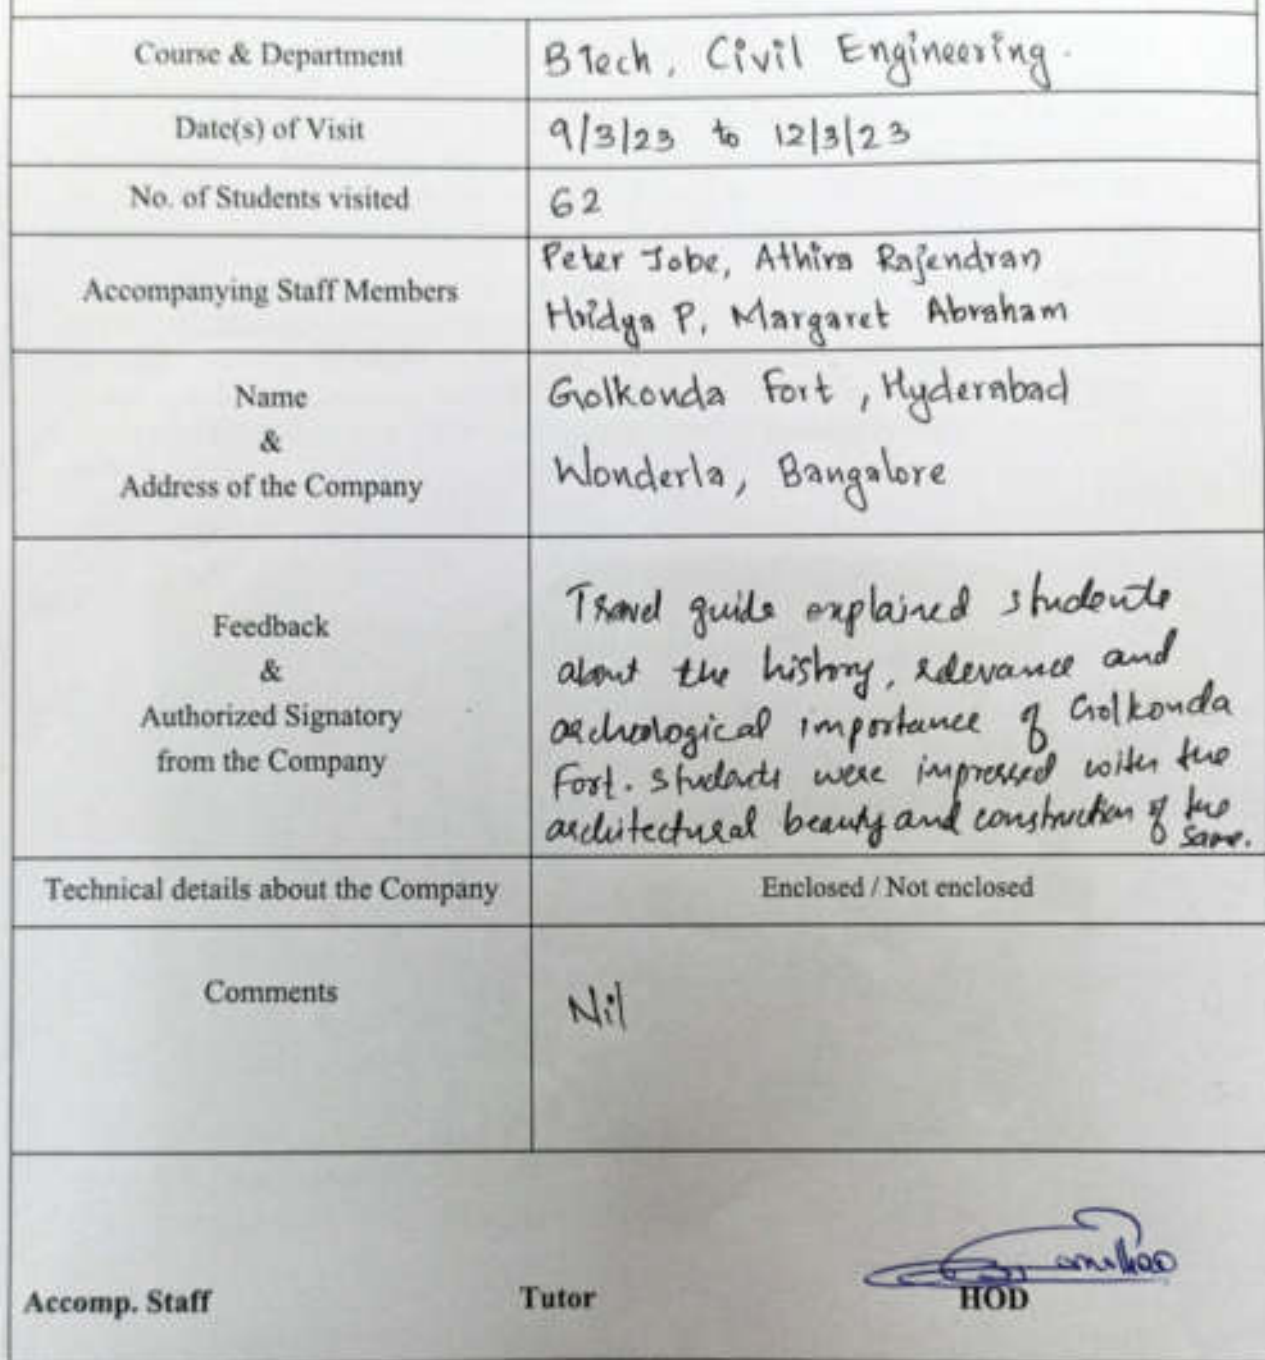 Course & Department
BTech, Civil Engineering.
Date(s) of Visit
9/3/23 to 12/3/23
No. of Students visited
62
Accompanying Staff Members
Peter Jobe, Athira Rajendran
Hridya P, Margaret Abraham
Name
&
Address of the Company
Golkonda Fort, Hyderabad
Wonderla, Bangalore
Feedback
&
Authorized Signatory
from the Company
Travel guide explained students
about the history, relevance and
archeological importance of Golkonda
Fort. Students were impressed with the
architectural beauty and construction of the
same.
Technical details about the Company
Enclosed / Not enclosed
Comments
Nil
Accomp. Staff
Tutor
HOD